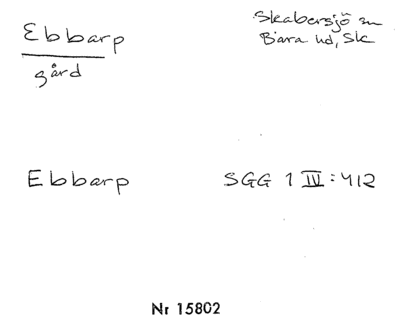 Ebbarp
gård
Skabersjö sn
Bara hd, Sk
Ebbarp
SGG 1 IV:412
Nr 15802